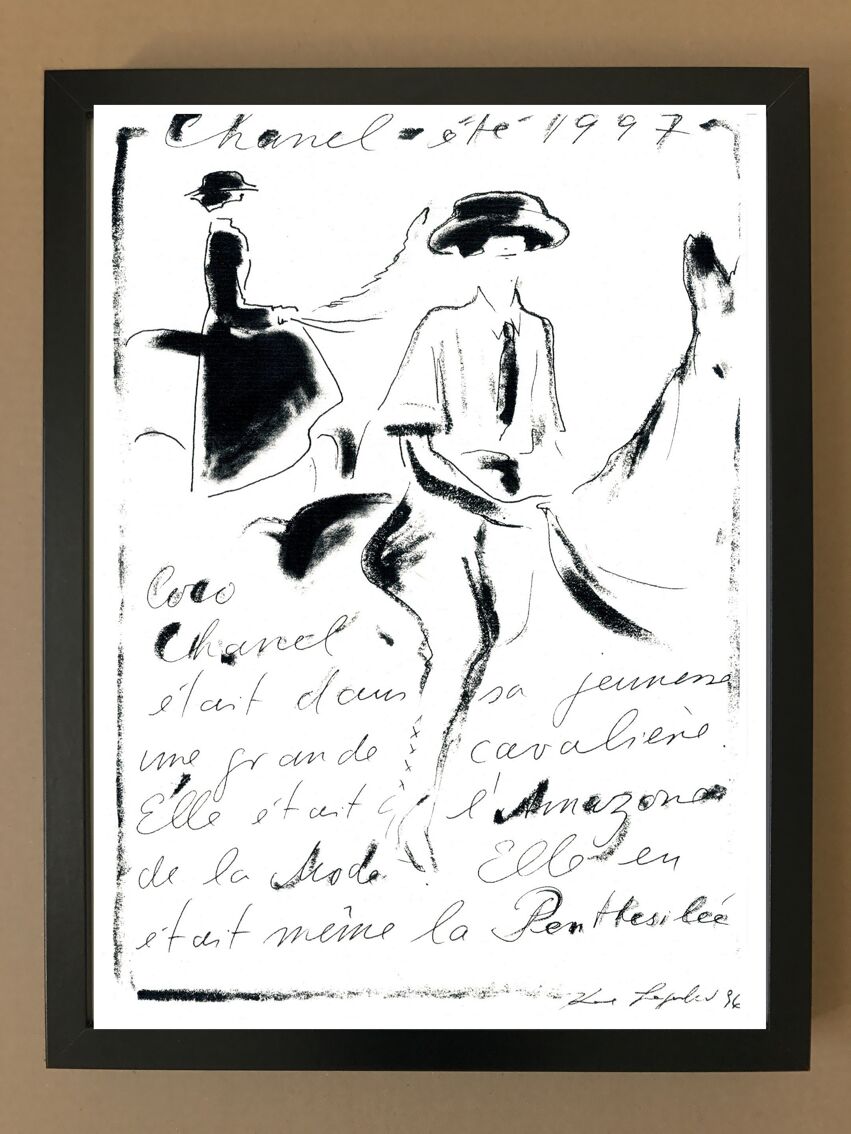 Chanel - été 1997 -
Coco
Chanel
était dans sa jeunesse
une grande cavalière.
Elle était l'Amazone
de la Mode. Elle en
était même la Penthesilée
Karl Lagerfeld 96